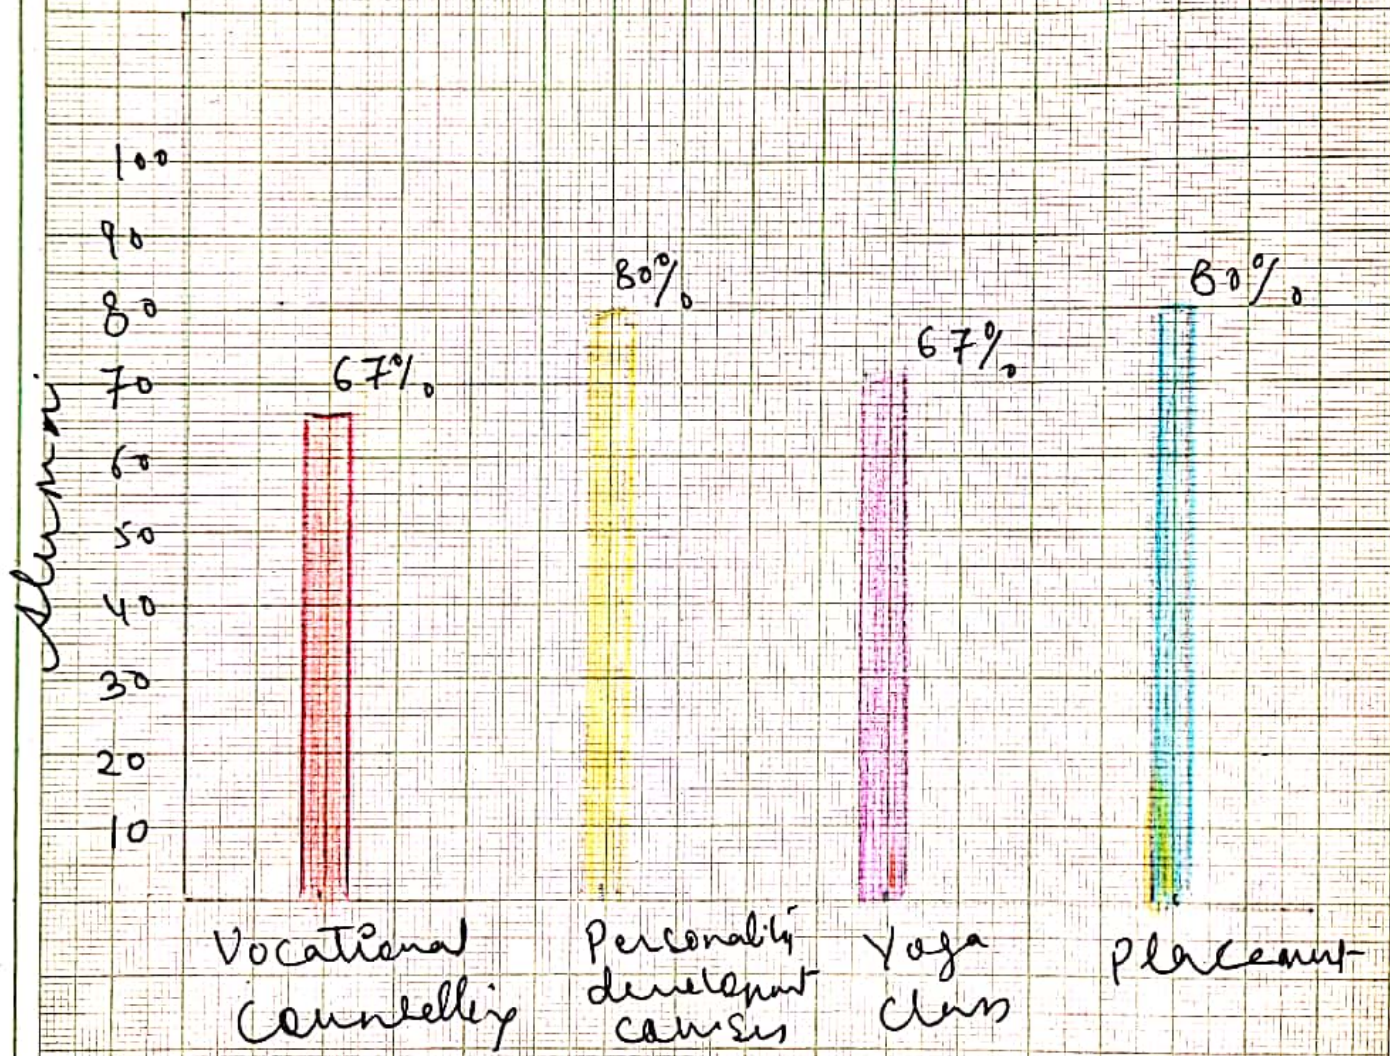 100
90
80
70
60
50
40
30
20
10
Alumni
67%
80%
67%
80%
Vocational
Counselling
Personality
development
courses
Yoga
Class
Placement